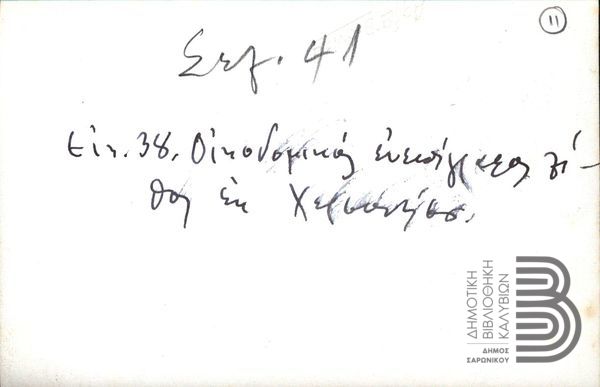 11
Σελ. 41
Εἰκ. 38. Οἰκοδομικός ἐνεπίγραφος λί-
θος ἐκ Χερσονήσου.
ΔΗΜΟΤΙΚΗ
ΒΙΒΛΙΟΘΗΚΗ
ΚΑΛΥΒΙΩΝ
ΔΗΜΟΣ
ΣΑΡΩΝΙΚΟΥ